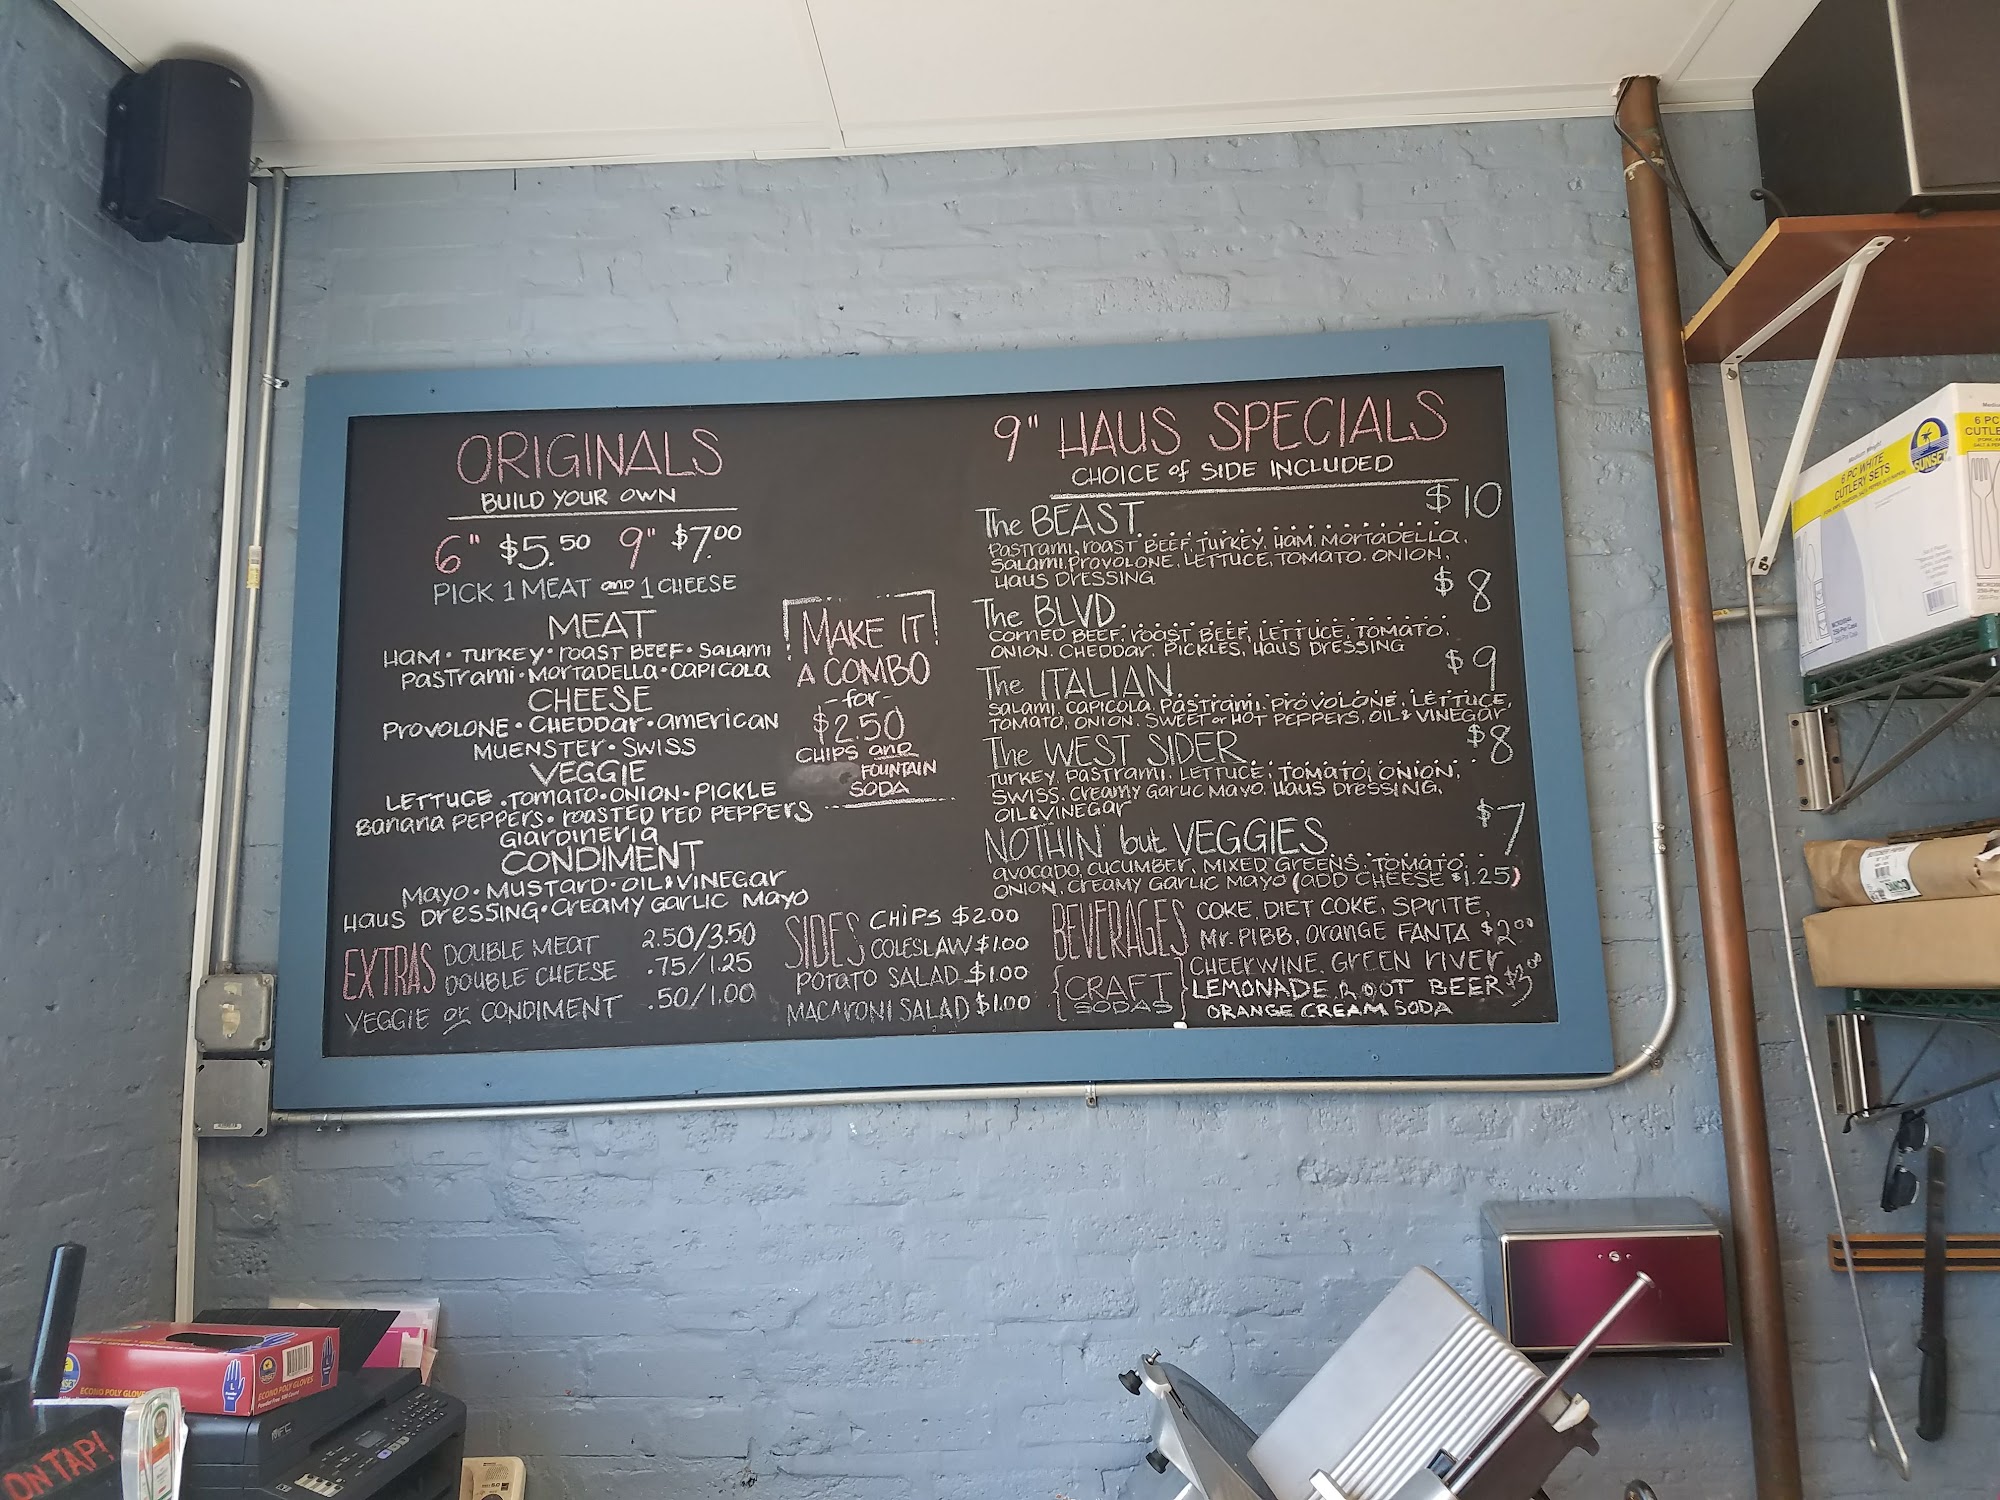 ORIGINALS
BUILD YOUR OWN
6" $5.50 9" $7.00
PICK 1 MEAT and 1 CHEESE
MEAT
HAM • TURKEY • ROAST BEEF • SALAMI
PASTRAMI • MORTADELLA • CAPICOLA
CHEESE
PROVOLONE • CHEDDAR • AMERICAN
MUENSTER • SWISS
VEGGIE
LETTUCE • TOMATO • ONION • PICKLE
BANANA PEPPERS • ROASTED RED PEPPERS
GIARDINERIA
CONDIMENT
MAYO • MUSTARD • OIL & VINEGAR
HAUS DRESSING • CREAMY GARLIC MAYO
EXTRAS
DOUBLE MEAT 2.50/3.50
DOUBLE CHEESE .75/1.25
VEGGIE or CONDIMENT .50/1.00
MAKE IT
A COMBO
-for-
$2.50
CHIPS and
FOUNTAIN
SODA
SIDES
CHIPS $2.00
COLESLAW $1.00
POTATO SALAD $1.00
MACARONI SALAD $1.00
9" HAUS SPECIALS
CHOICE of SIDE INCLUDED
The BEAST $10
PASTRAMI, ROAST BEEF, TURKEY, HAM, MORTADELLA,
SALAMI, PROVOLONE, LETTUCE, TOMATO, ONION,
HAUS DRESSING
The BLVD $8
CORNED BEEF, ROAST BEEF, LETTUCE, TOMATO,
ONION, CHEDDAR, PICKLES, HAUS DRESSING
The ITALIAN $9
SALAMI, CAPICOLA, PASTRAMI, PROVOLONE, LETTUCE,
TOMATO, ONION, SWEET or HOT PEPPERS, OIL & VINEGAR
The WEST SIDER $8
TURKEY, PASTRAMI, LETTUCE, TOMATO, ONION,
SWISS, CREAMY GARLIC MAYO, HAUS DRESSING,
OIL & VINEGAR
NOTHIN' but VEGGIES $7
AVOCADO, CUCUMBER, MIXED GREENS, TOMATO,
ONION, CREAMY GARLIC MAYO (ADD CHEESE $1.25)
BEVERAGES
COKE, DIET COKE, SPRITE,
MR. PIBB, ORANGE FANTA $2.00
{CRAFT SODAS}
CHEERWINE, GREEN RIVER
LEMONADE, ROOT BEER $3.00
ORANGE CREAM SODA
6 PC WHITE
CUTLERY SETS
SUNSET
ECONO POLY GLOVES
ECONO POLY GLOVES
L
MFC
ON TAP!